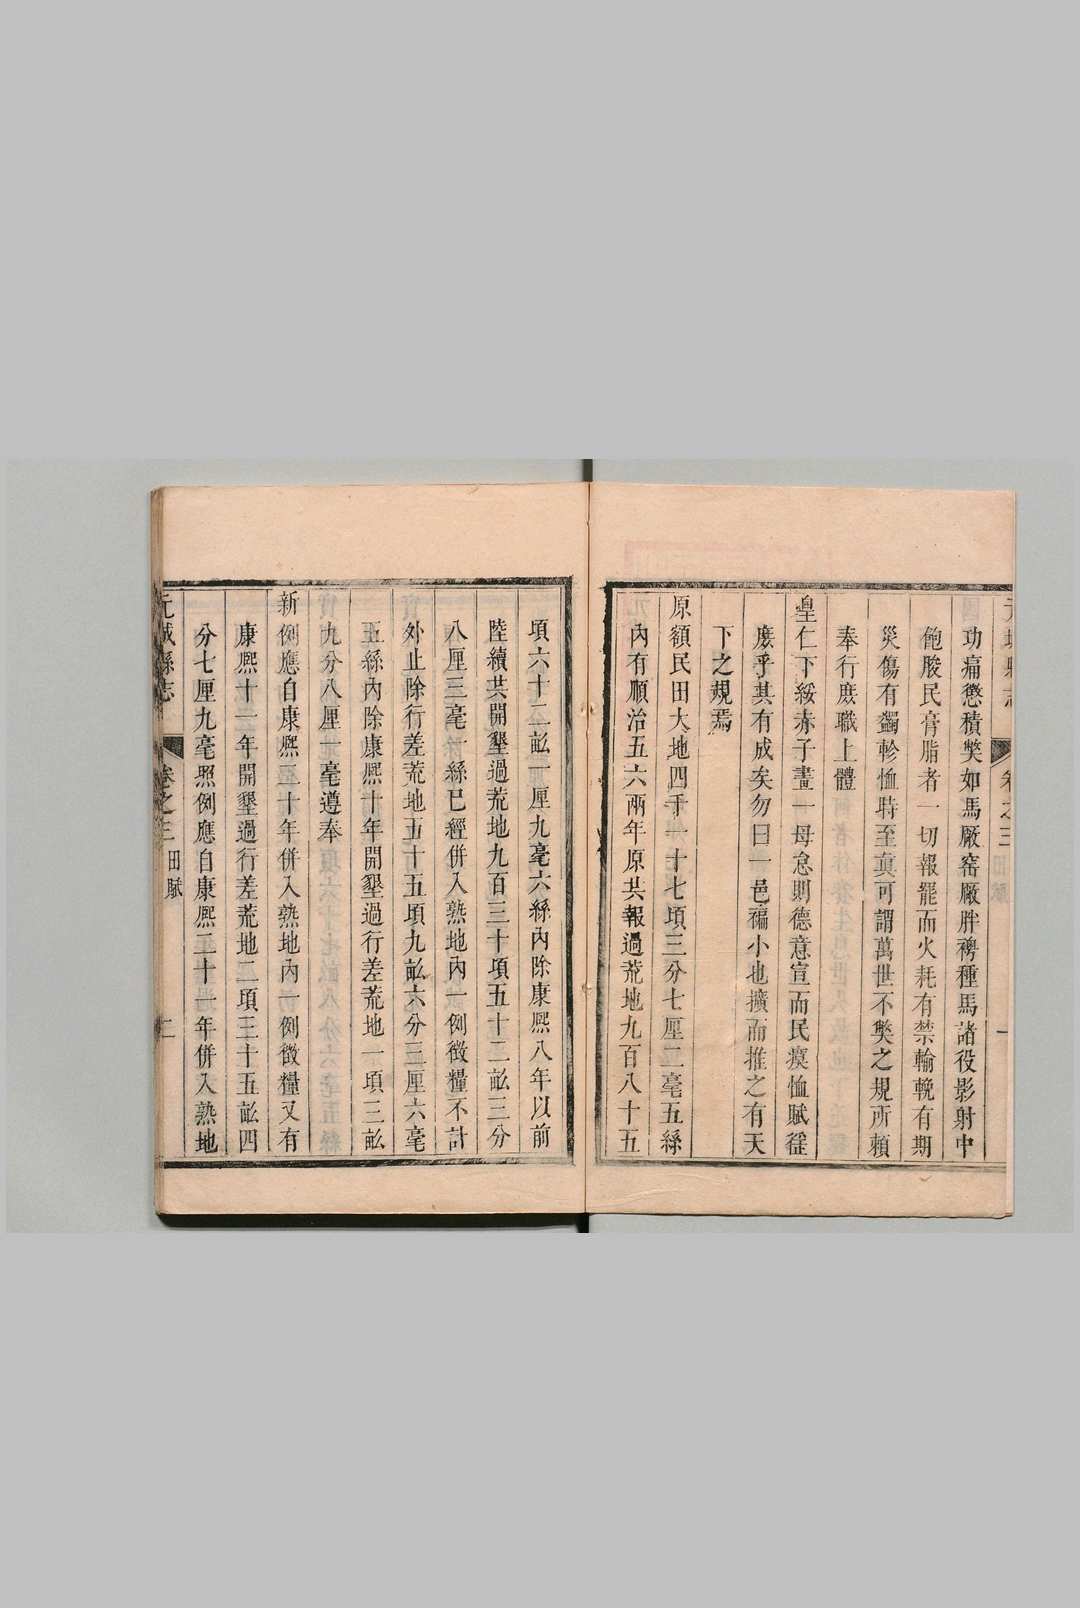 元城縣志
卷之三
田賦
一
功痛懲積獘如馬厰窑厰胖襖種馬諸役影射中
飽朘民膏脂者一切報罷而火耗有禁輸輓有期
災傷有蠲軫恤時至眞可謂萬世不獘之規所頼
奉行庶職上體
皇仁下綏赤子畫一毋怠則德意宣而民瘼恤賦徭
庶乎其有成矣勿曰一邑褊小也擴而推之有天
下之規焉
原額民田大地四千一十七項三分七厘二毫五絲
內有順治五六兩年原共報過荒地九百八十五
項六十二畝一厘九毫六絲內除康熙八年以前
陸續共開墾過荒地九百三十項五十二畝三分
八厘三毫一絲已經併入熟地內一例徵糧不計
外止除行差荒地五十五項九畝六分三厘六毫
五絲內除康熙十年開墾過行差荒地一項三畝
九分八厘一毫遵奉
新例應自康熙二十年併入熟地內一例徵糧又有
康熙十一年開墾過行差荒地二項三十五畝四
分七厘九毫照例應自康熙二十一年併入熟地
元城縣志
卷之三
田賦
二